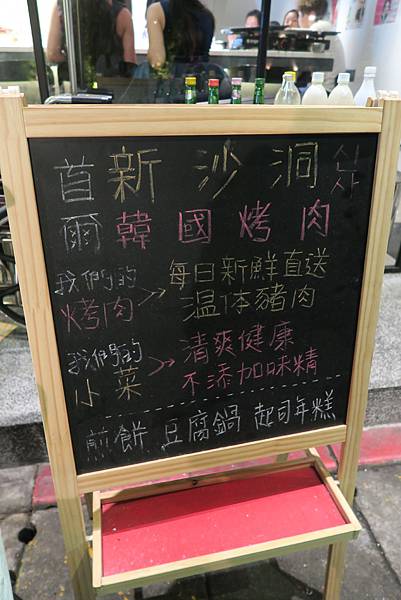 首新沙洞 신사
爾韓國烤肉
我們的烤肉 > 每日新鮮直送
温体豬肉
我們的小菜 > 清爽健康
不添加味精
煎餅 豆腐鍋 起司年糕